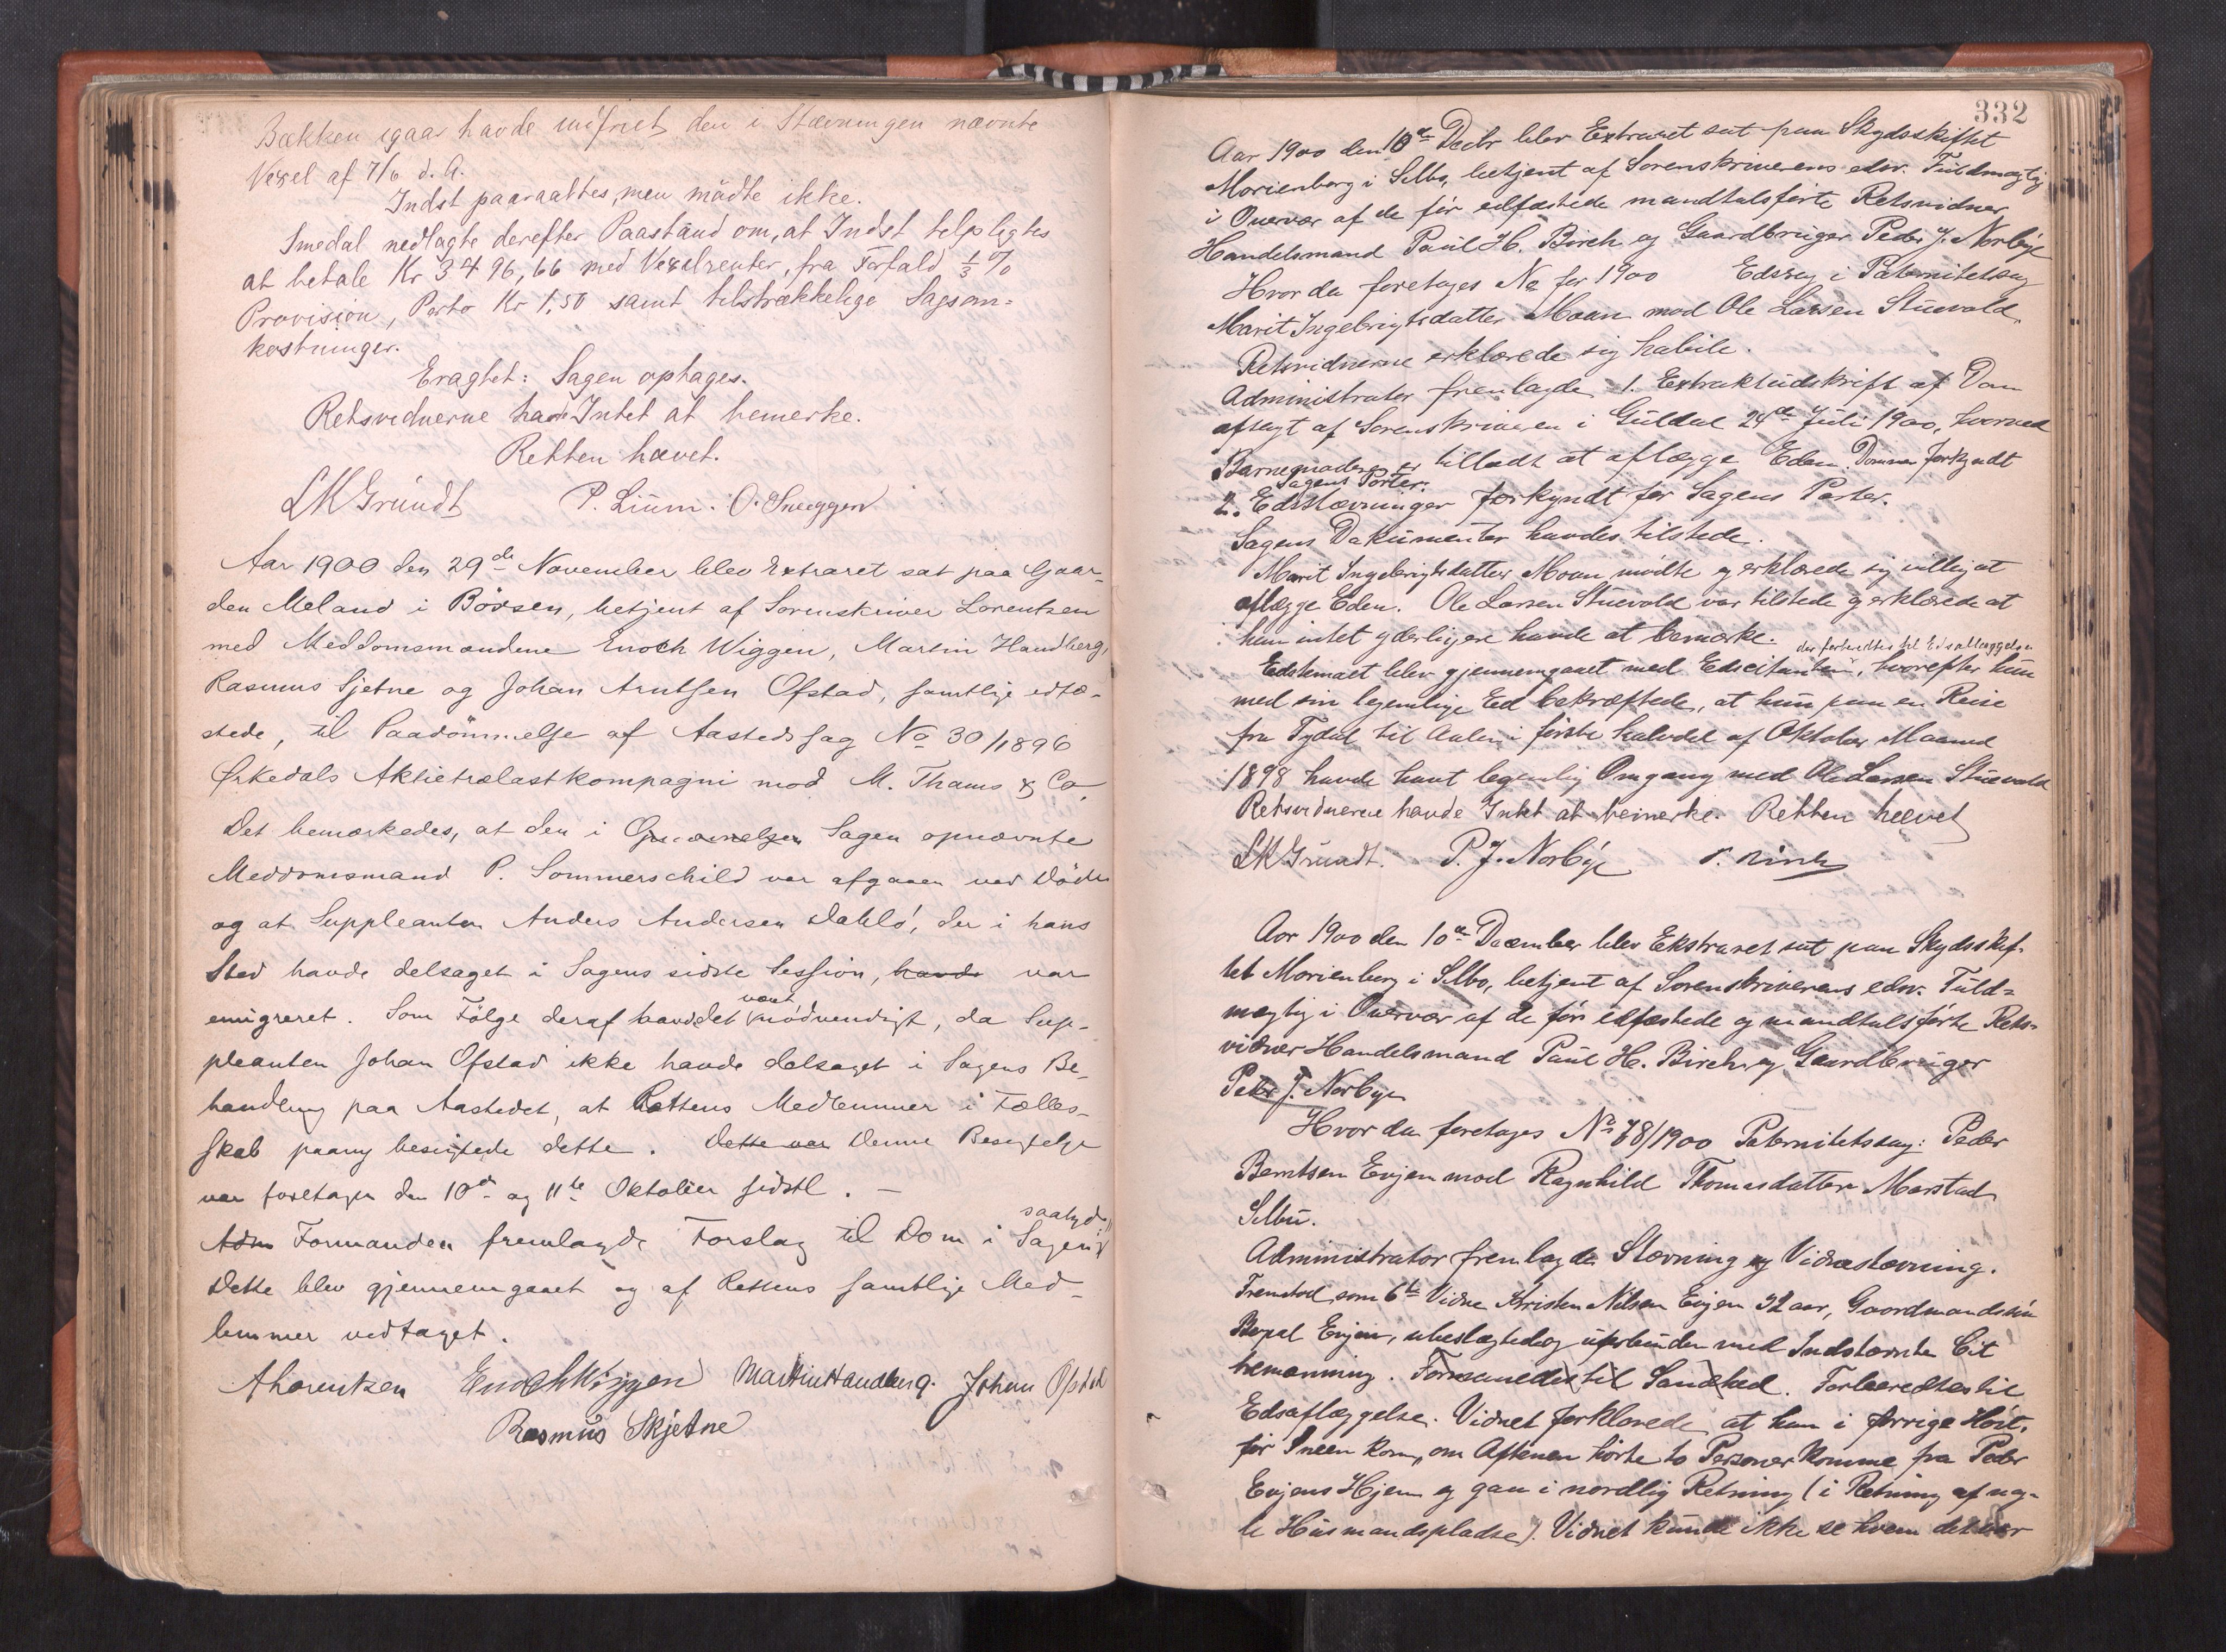 Bækken igaar havde indfriet den i Stævningen nævnte
Vexel af 7/6 d. A.
Indst paaraabtes, men mödte ikke.
Smedal nedlagte derefter Paastand om, at Indst tilpligtes
at betale Kr 3496,66 med Vexelrenter, fra Forfald, 1/3 %
Provision, Porto Kr 1,50 samt tilstrækkelige Sagsom-
kostninger.
Eragtet: Sagen optages.
Retsvidnerne havde Intet at bemerke.
Retten hævet.
LKGrundt P. Lium. O. Sneggen
Aar 1900 den 29de November blev Extraret sat paa Gaar-
den Meland i Börsen, betjent af Sorenskriver Lorentzen
med Meddomsmændene Enoch Wiggen, Martin Handberg,
Rasmus Sjetne og Johan Arntsen Ofstad, samtlige edfæ-
stede, til Paadömmelse af Aastedssag No 30/1896
Ørkedals Aktietrælastkompagni mod M. Thams & Co.
Det bemærkedes, at den i Sagen opnævnte
Meddomsmand P. Sommerschild var afgaaen ved Döden
og at Suppleanten Anders Andersen Dahlö, der i hans
Sted havde deltaget i Sagens sidste Session, havde var
emigreret. Som Fölge deraf havde det været nödvendigt, da Sup-
pleanten Johan Ofstad ikke havde deltaget i Sagens Be-
handling paa Aastedet, at Rettens Medlemmer i Fælles-
skab paany besigtede dette. Dette var Denne Besigtelse
var foretagen den 10de og 11te Oktober sidstl. –
saalyde
Adm Formanden fremlagde Forslag til Dom i Sagen
Dette blev gjennemgaaet og af Rettens samtlige Med-
lemmer vedtaget.
ALorentzen Enoch Wiggen Martin Handberg. Johan Ofstad
Rasmus Skjetne
332
Aar 1900 den 10de Decbr blev Extraret sat paa Skydsskiftet
Marienborg i Selbo, betjent af Sorenskriverens edsv. Fuldmægtig
i Overvær af de för edfæstede mandtalsförte Retsvidner
Handelsmand Paul H. Birch og Gaardbruger Peder J. Norbye
Hvor da foretages No for 1900 Edssag i Paternitetssag
Marit Ingebrigtsdatter Moan mod Ole Larsen Stuevold.
Retsvidnerne erklærede sig habile.
Administrator fremlagde 1. Extraktudskrift af Dom
afsagt af Sorenskriveren i Guldal 24de Juli 1900, hvorved
Barnemoderen er tilladt at aflægge Eden. Dommen forkyndt
Sagens Parter.
2. Edsstævninger forkyndt for Sagens Parter.
Sagens Dokumenter havdes tilstede.
Marit Ingebrigtsdatter Moan mödte og erklærede sig villig at
aflægge Eden. Ole Larsen Stuevold var tilstede og erklærede at
han intet yderligere havde at bemærke.
der forberedtes til Edsaflæggelsen
Edstemaet blev gjennemgaaet med Edscitantinden, hvorefter hun
med sin legemlige Ed bekræftede, at hun paa en Reise
fra Tydal til Aalen i förste halvdel af Oktober Maaned
1898 havde havt legemlig Omgang med Ole Larsen Stuevold
Retsvidnerne havde Intet at bemerke. Retten hævet
LKGrundt. P. J. Norbye P. Birch
Aar 1900 den 10de December blev Ekstraret sat paa Skydsskif-
tet Marienborg i Selbo, betjent af Sorenskriverens edsv. Fuld-
mægtig i Overvær af de för edfæstede og mandtalsförte Rets-
vidner Handelsmand Paul H. Birch og Gaardbruger
Peder J. Norbye
Hvor da foretages No 78/1900 Paternitetssag: Peder
Berntsen Evjen mod Ragnhild Thomasdatter Marstad
Selbu.
Administrator fremlagde Stævning og Vidnestævning.
Fremstod som 6te Vidne Kristen Nilsen Evjen 32 aar, Gaardmandssön
Bopæl Evjen, ubeslægted og uforbunden med Indstævnte Cit
bemanning. Formanedes til Sandhed. Forberedtes til
Edsaflæggelse. Vidnet forklarede at han i forrige Höst,
för Sneen kom, om Aftenen hörte to Personer komme fra Peder
Evjens Hjem og gaa i nordlig Retning (i Retning af nog-
le Husmandspladse). Vidnet kunde ikke se hvem det var